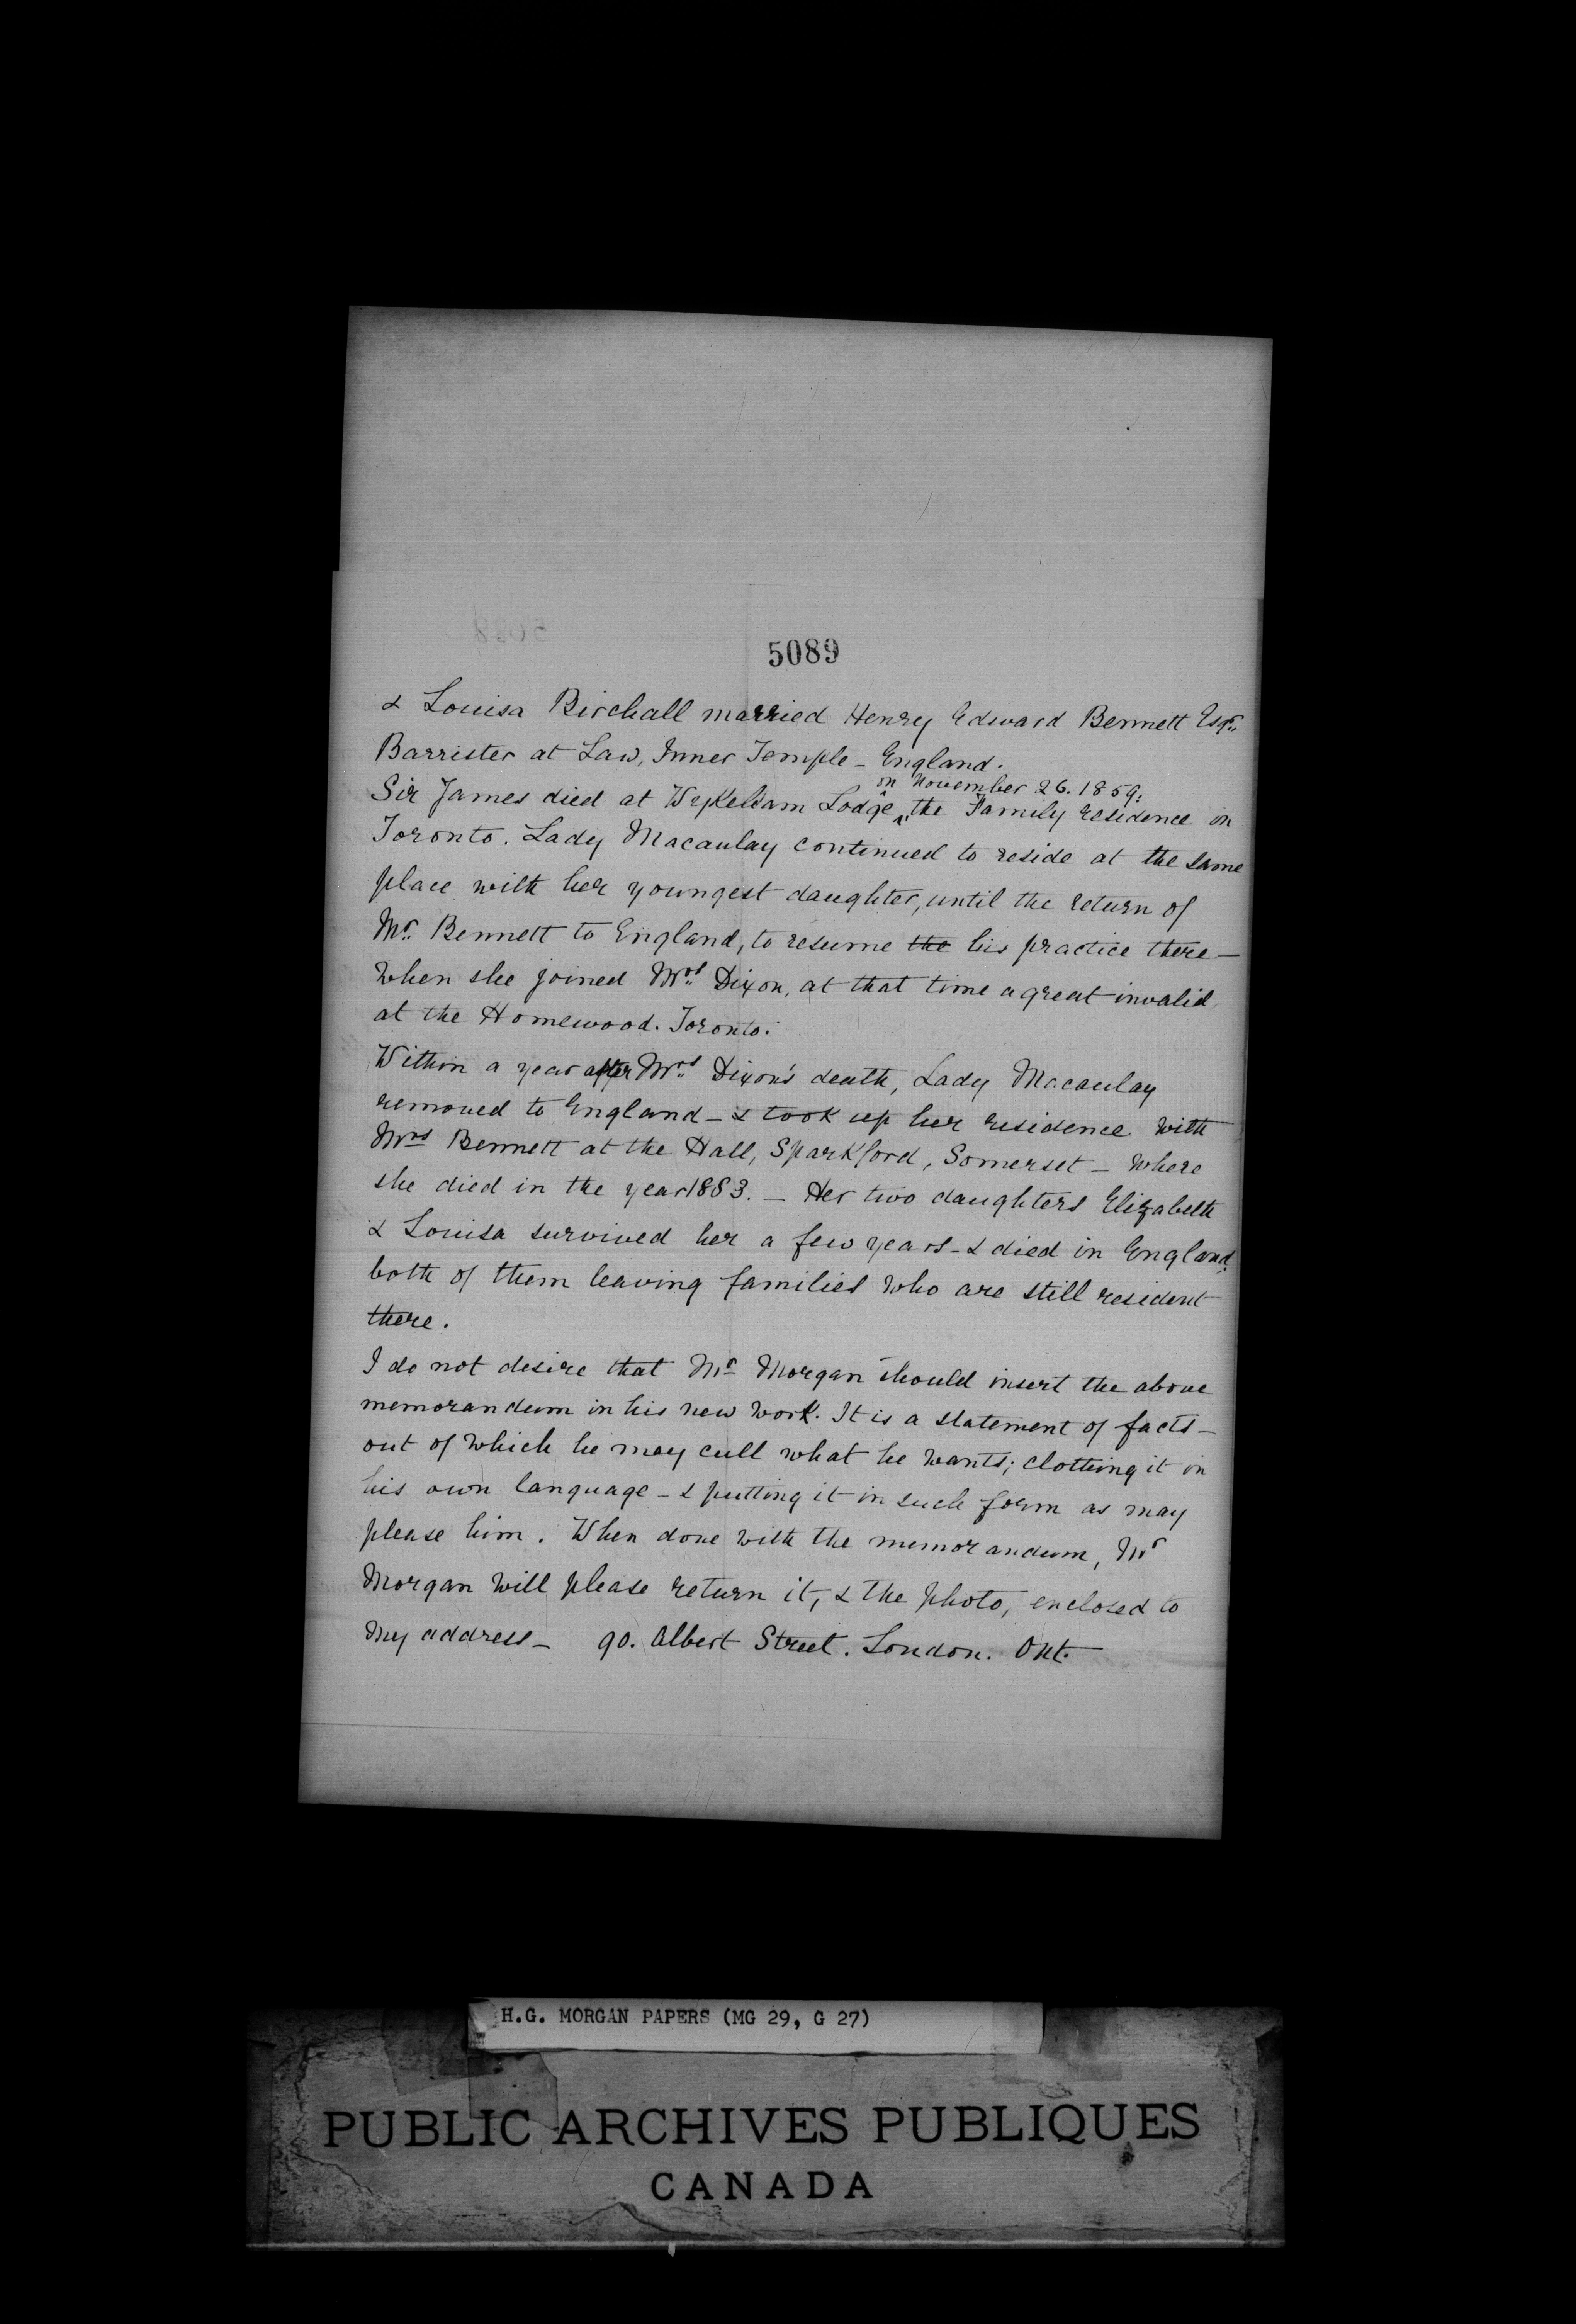 5089
& Louisa Birchall married Henry Edward Bennett Esqr.
Barrister at Law, Inner Temple - England.
on November 26. 1859.
Sir James died at Wykeham Lodge, the Family residence in
Toronto. Lady Macaulay continued to reside at the same
place with her youngest daughter, until the return of
Mr. Bennett to England, to resume the his practice there —
when she joined Mrs. Dixon, at that time a great invalid,
at the Homewood. Toronto.
Within a year after Mrs. Dixon's death, Lady Macaulay
removed to England - & took up her residence with
Mrs Bennett at the Hall, Sparkford, Somerset - where
she died in the year 1883. — Her two daughters Elizabeth
& Louisa survived her a few years - & died in England,
both of them leaving families who are still resident
there.
I do not desire that Mr Morgan should insert the above
memorandum in his new work. It is a statement of facts —
out of which he may cull what he wants; clothing it in
his own language - & putting it in such form as may
please him. When done with the memorandum, Mr
Morgan will please return it, & the photo, enclosed to
my address — 90. Albert Street. London. Ont.
H.G. MORGAN PAPERS (MG 29, G 27)
PUBLIC ARCHIVES PUBLIQUES
CANADA